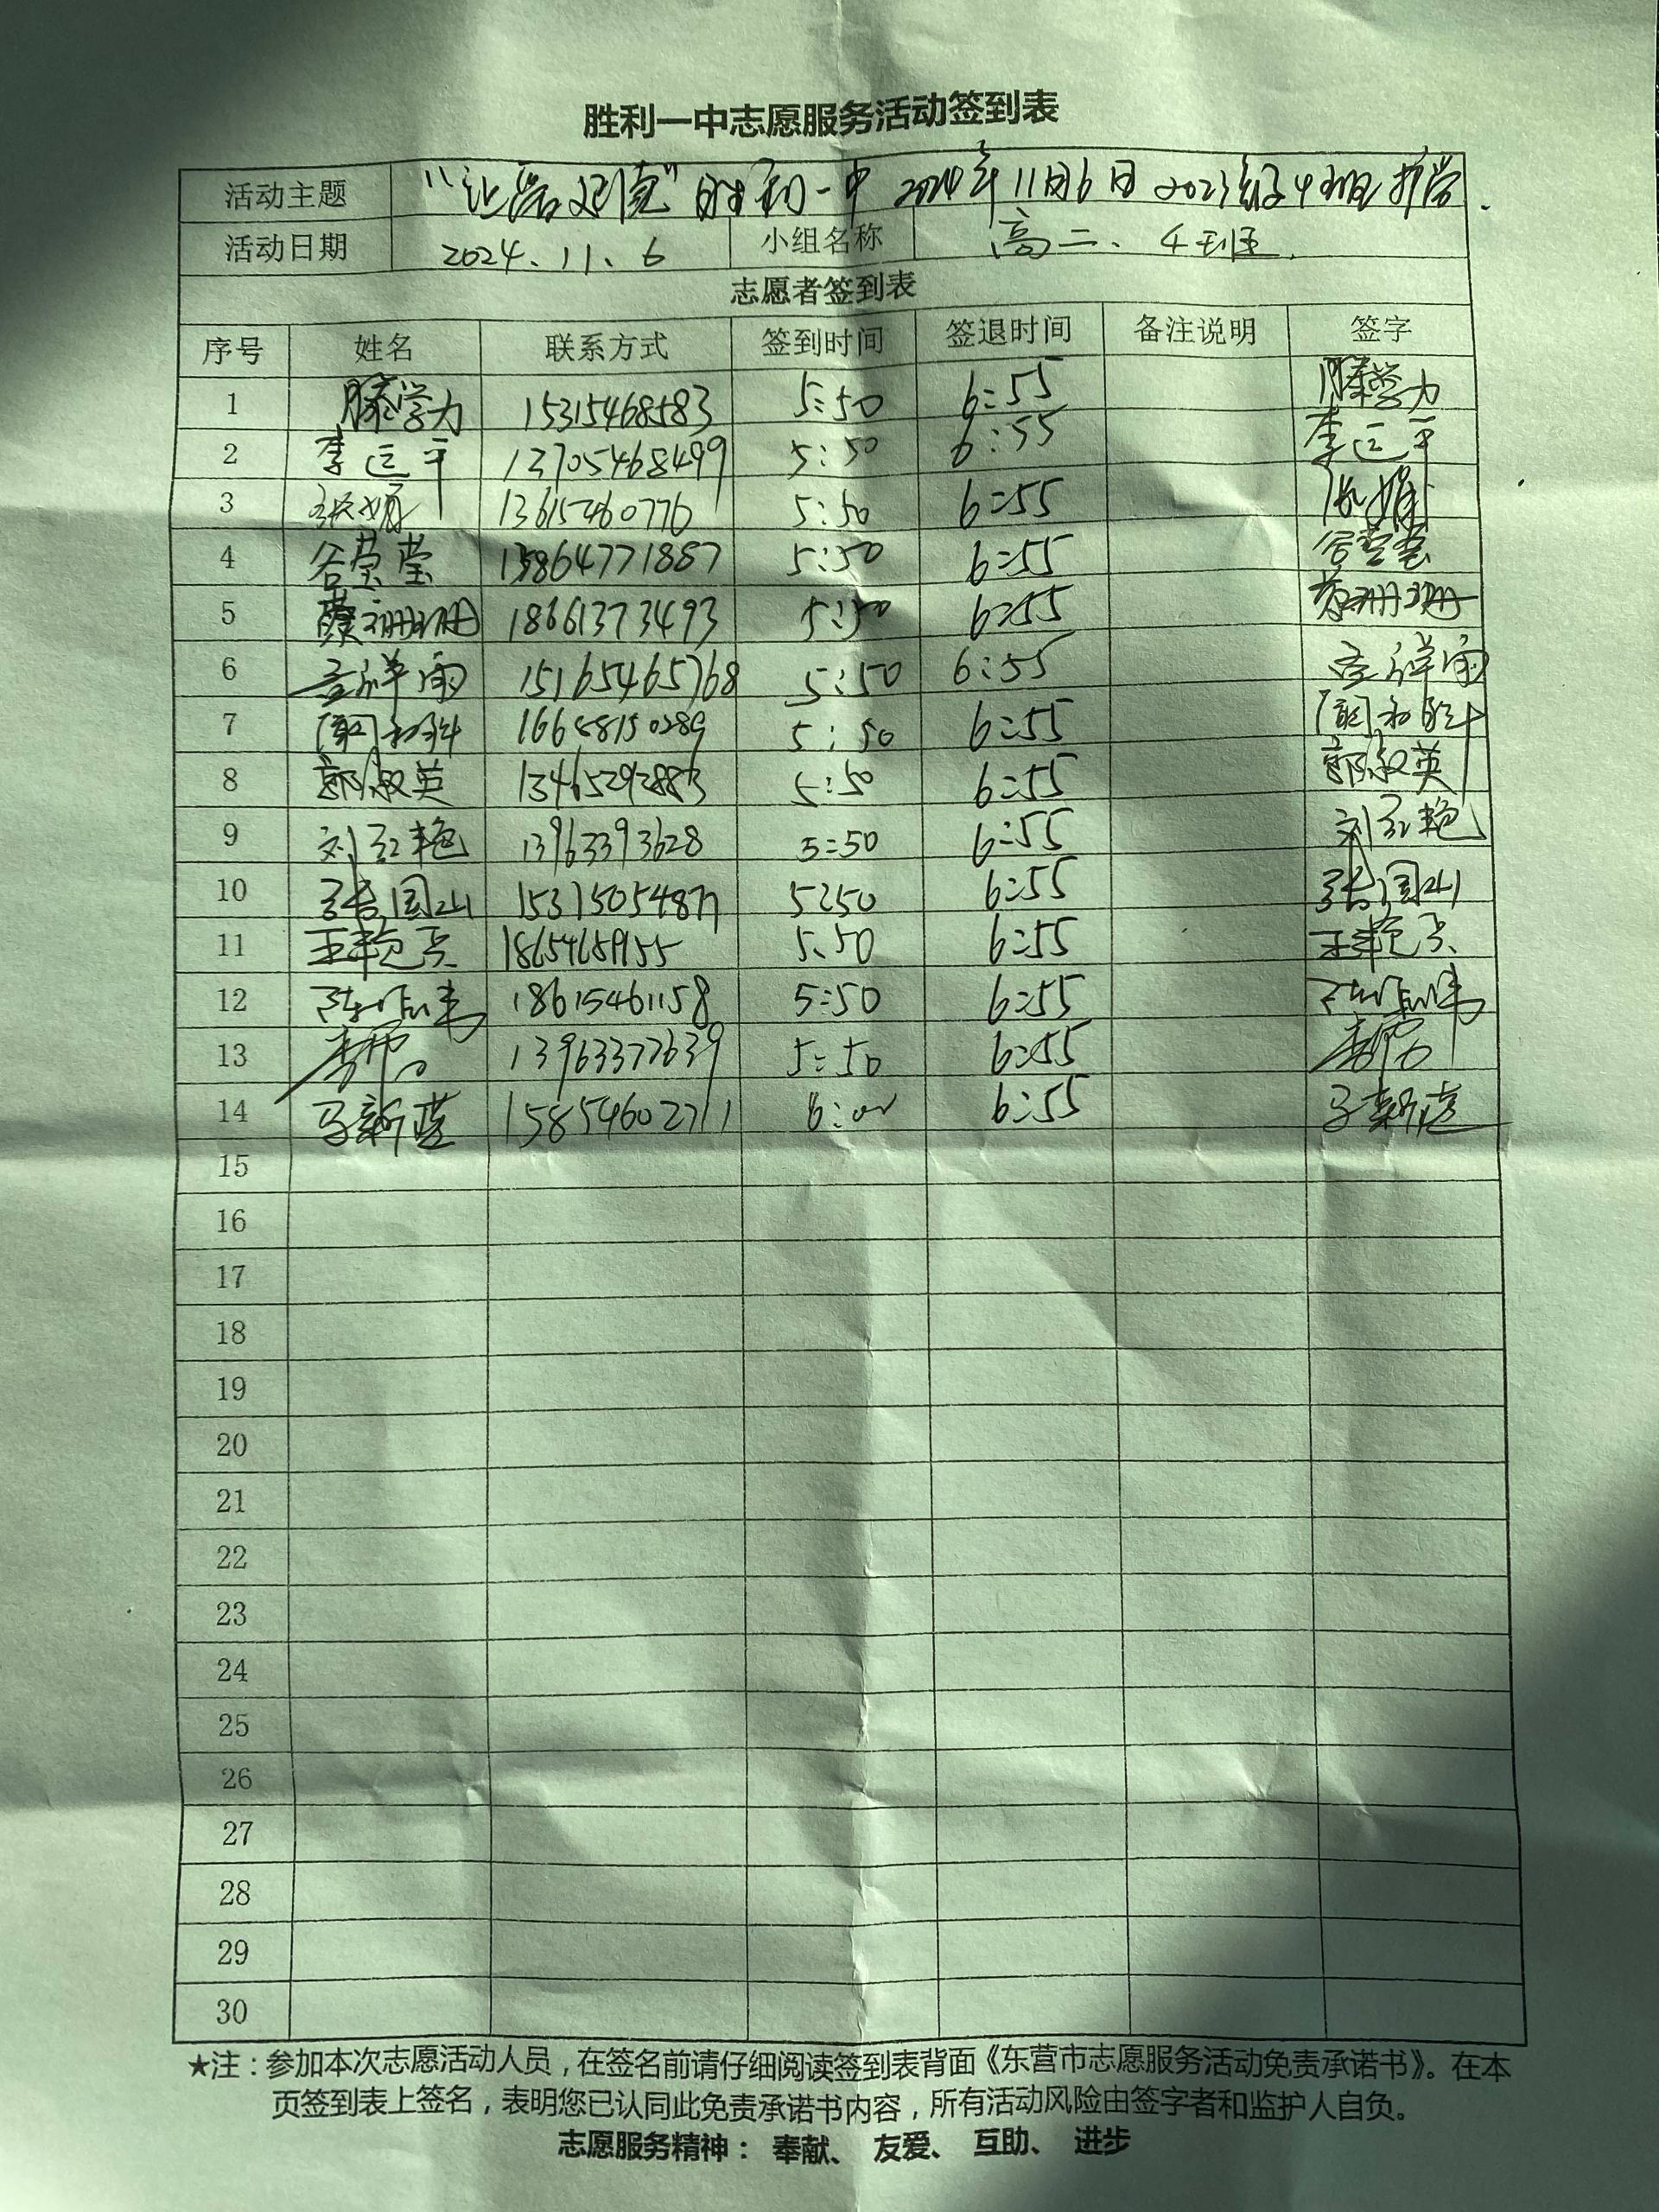 胜利一中志愿服务活动签到表
活动主题 "让 " 胜利一中 2024年11月6日 2023级4班护学.
活动日期 2024、11、6 小组名称 高二、4班.
志愿者签到表
序号 姓名 联系方式 签到时间 签退时间 备注说明 签字
1 滕学力 15315468583 5:50 6:55 滕学力
2 李运平 13705468499 5:50 6:55 李运平
3 张娟 13615460776 5:50 6:55 张娟
4 谷莹莹 13864771887 5:50 6:55 谷莹莹
5 珊珊 18661373493 5:50 6:55 珊珊
6 祥雨 15165465768 5:50 6:55 祥雨
7 5:50 6:55
8 郭淑英 5:50 6:55 郭淑英
9 刘红艳 13963393628 5:50 6:55 刘红艳
10 张国山 15315054877 5:50 6:55 张国山
11 王艳 5:50 6:55 王艳
12 陈 18615461158 5:50 6:55 陈
13 李 13963377639 5:50 6:55 李
14 马新莲 15854602711 6:00 6:55 马新莲
15
16
17
18
19
20
21
22
23
24
25
26
27
28
29
30
★注：参加本次志愿活动人员，在签名前请仔细阅读签到表背面《东营市志愿服务活动免责承诺书》。在本
页签到表上签名，表明您已认同此免责承诺书内容，所有活动风险由签字者和监护人自负。
志愿服务精神： 奉献、 友爱、 互助、 进步